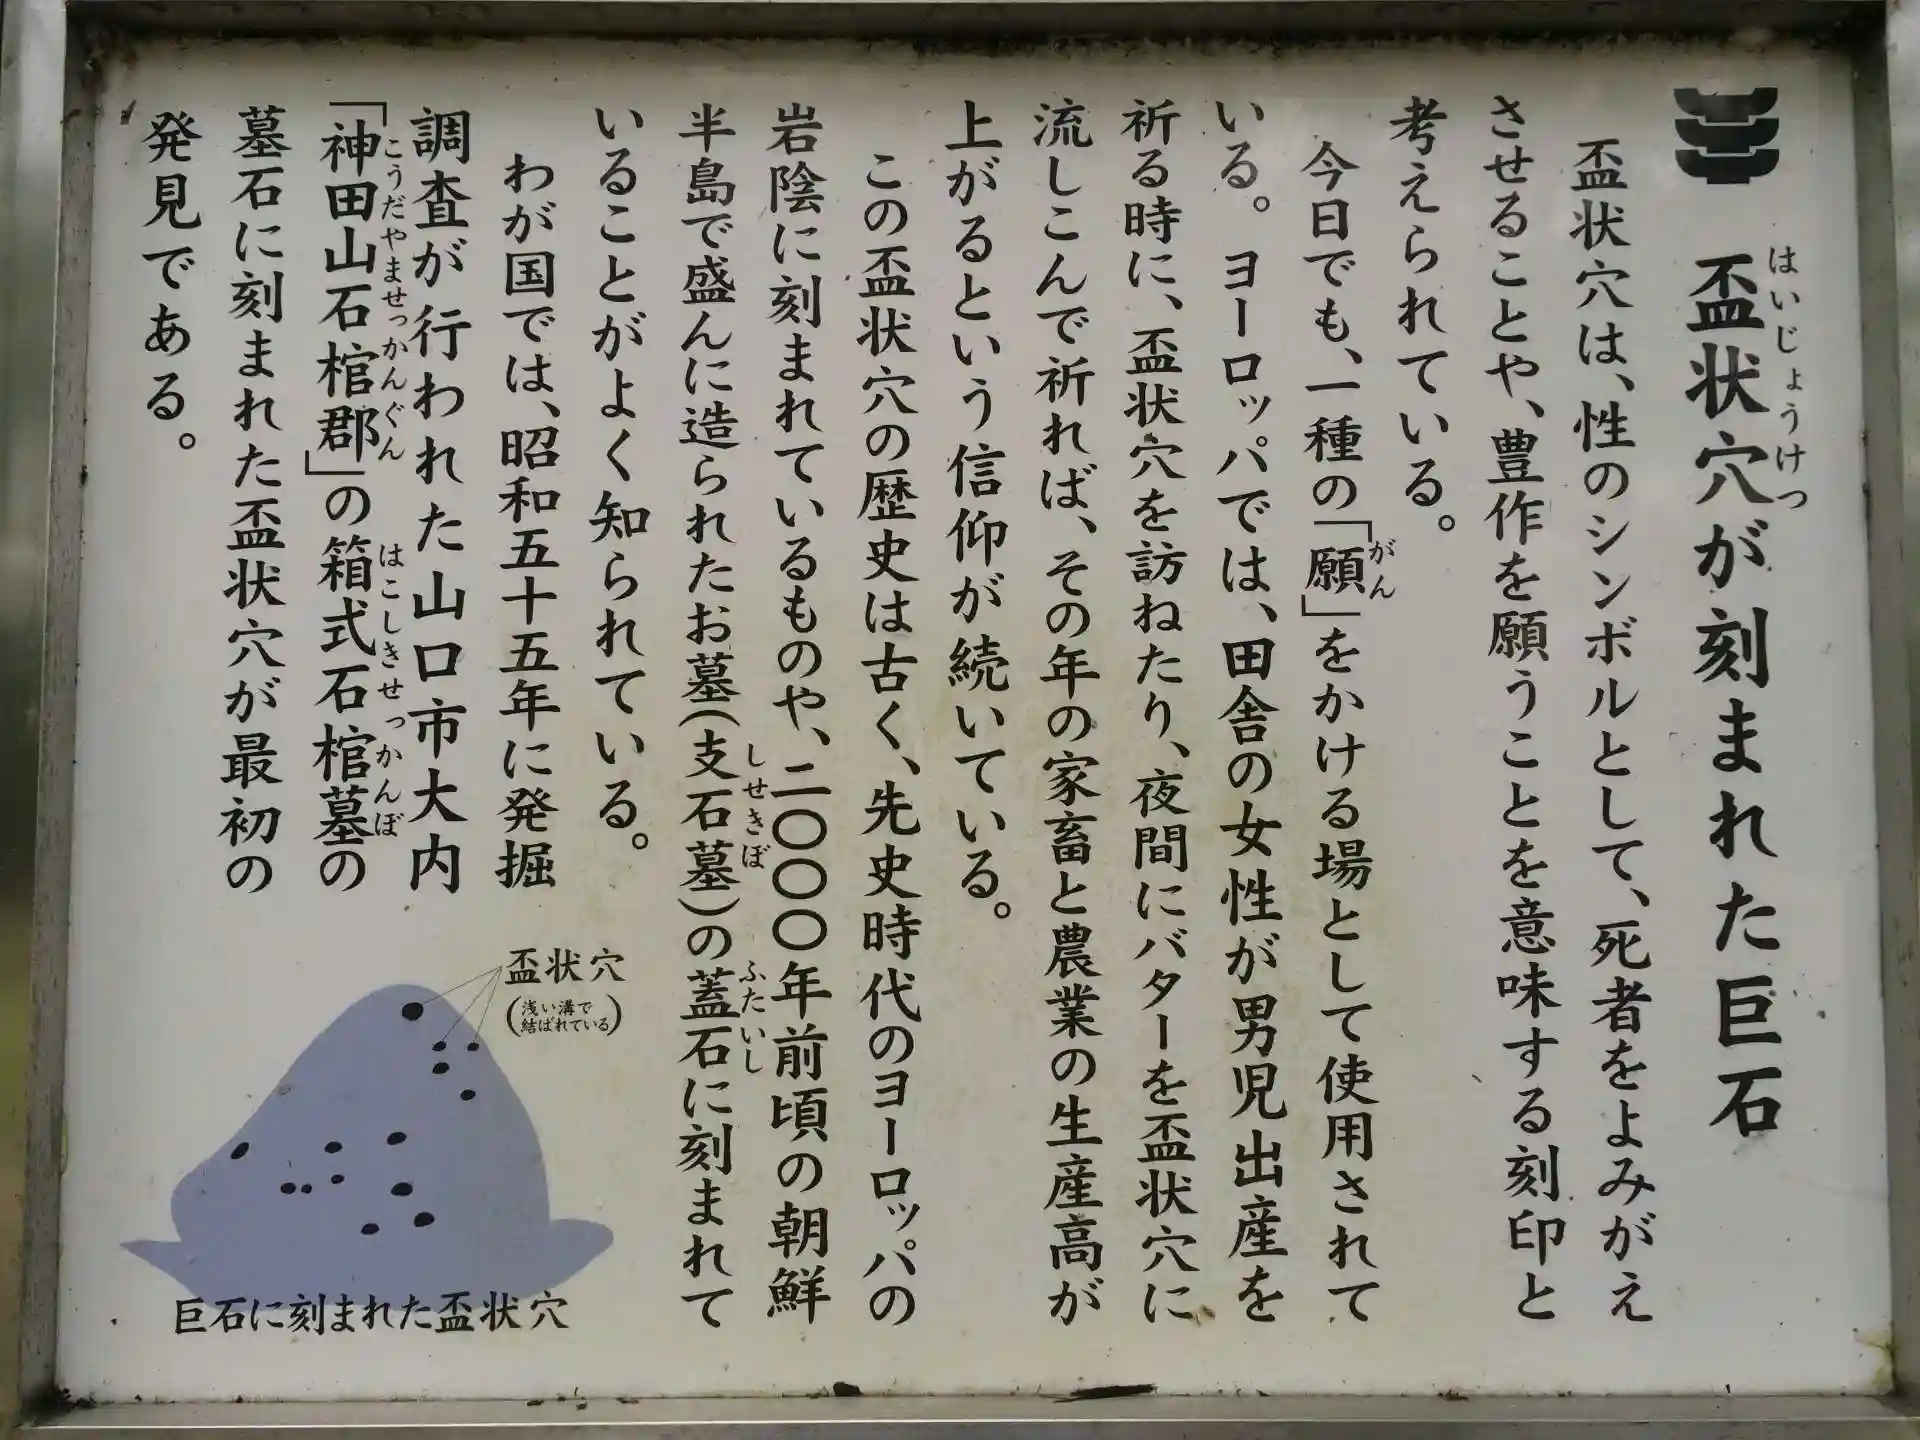 盃状穴が刻まれた巨石
はいじょうけつ
盃状穴は、性のシンボルとして、死者をよみがえ
させることや、豊作を願うことを意味する刻印と
考えられている。
今日でも、一種の「願」をかける場として使用されて
がん
いる。ヨーロッパでは、田舎の女性が男児出産を
祈る時に、盃状穴を訪ねたり、夜間にバターを盃状穴に
流しこんで祈れば、その年の家畜と農業の生産高が
上がるという信仰が続いている。
この盃状穴の歴史は古く、先史時代のヨーロッパの
岩陰に刻まれているものや、二〇〇〇年前頃の朝鮮
半島で盛んに造られたお墓(支石墓)の蓋石に刻まれて
しせきぼ
ふたいし
いることがよく知られている。
わが国では、昭和五十五年に発掘
調査が行われた山口市大内
「神田山石棺郡」の箱式石棺墓の
こうだやませっかんぐん
はこしきせっかんぼ
墓石に刻まれた盃状穴が最初の
発見である。
盃状穴
(浅い溝で
結ばれている)
巨石に刻まれた盃状穴